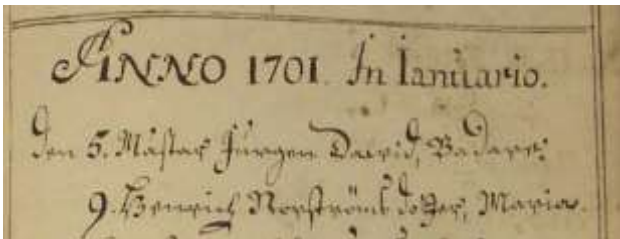 ANNO 1701. In Ianuario.
Den 5. Mästar Jürgen David, Badare.
9. Henrich Norströms dotter, Maria.